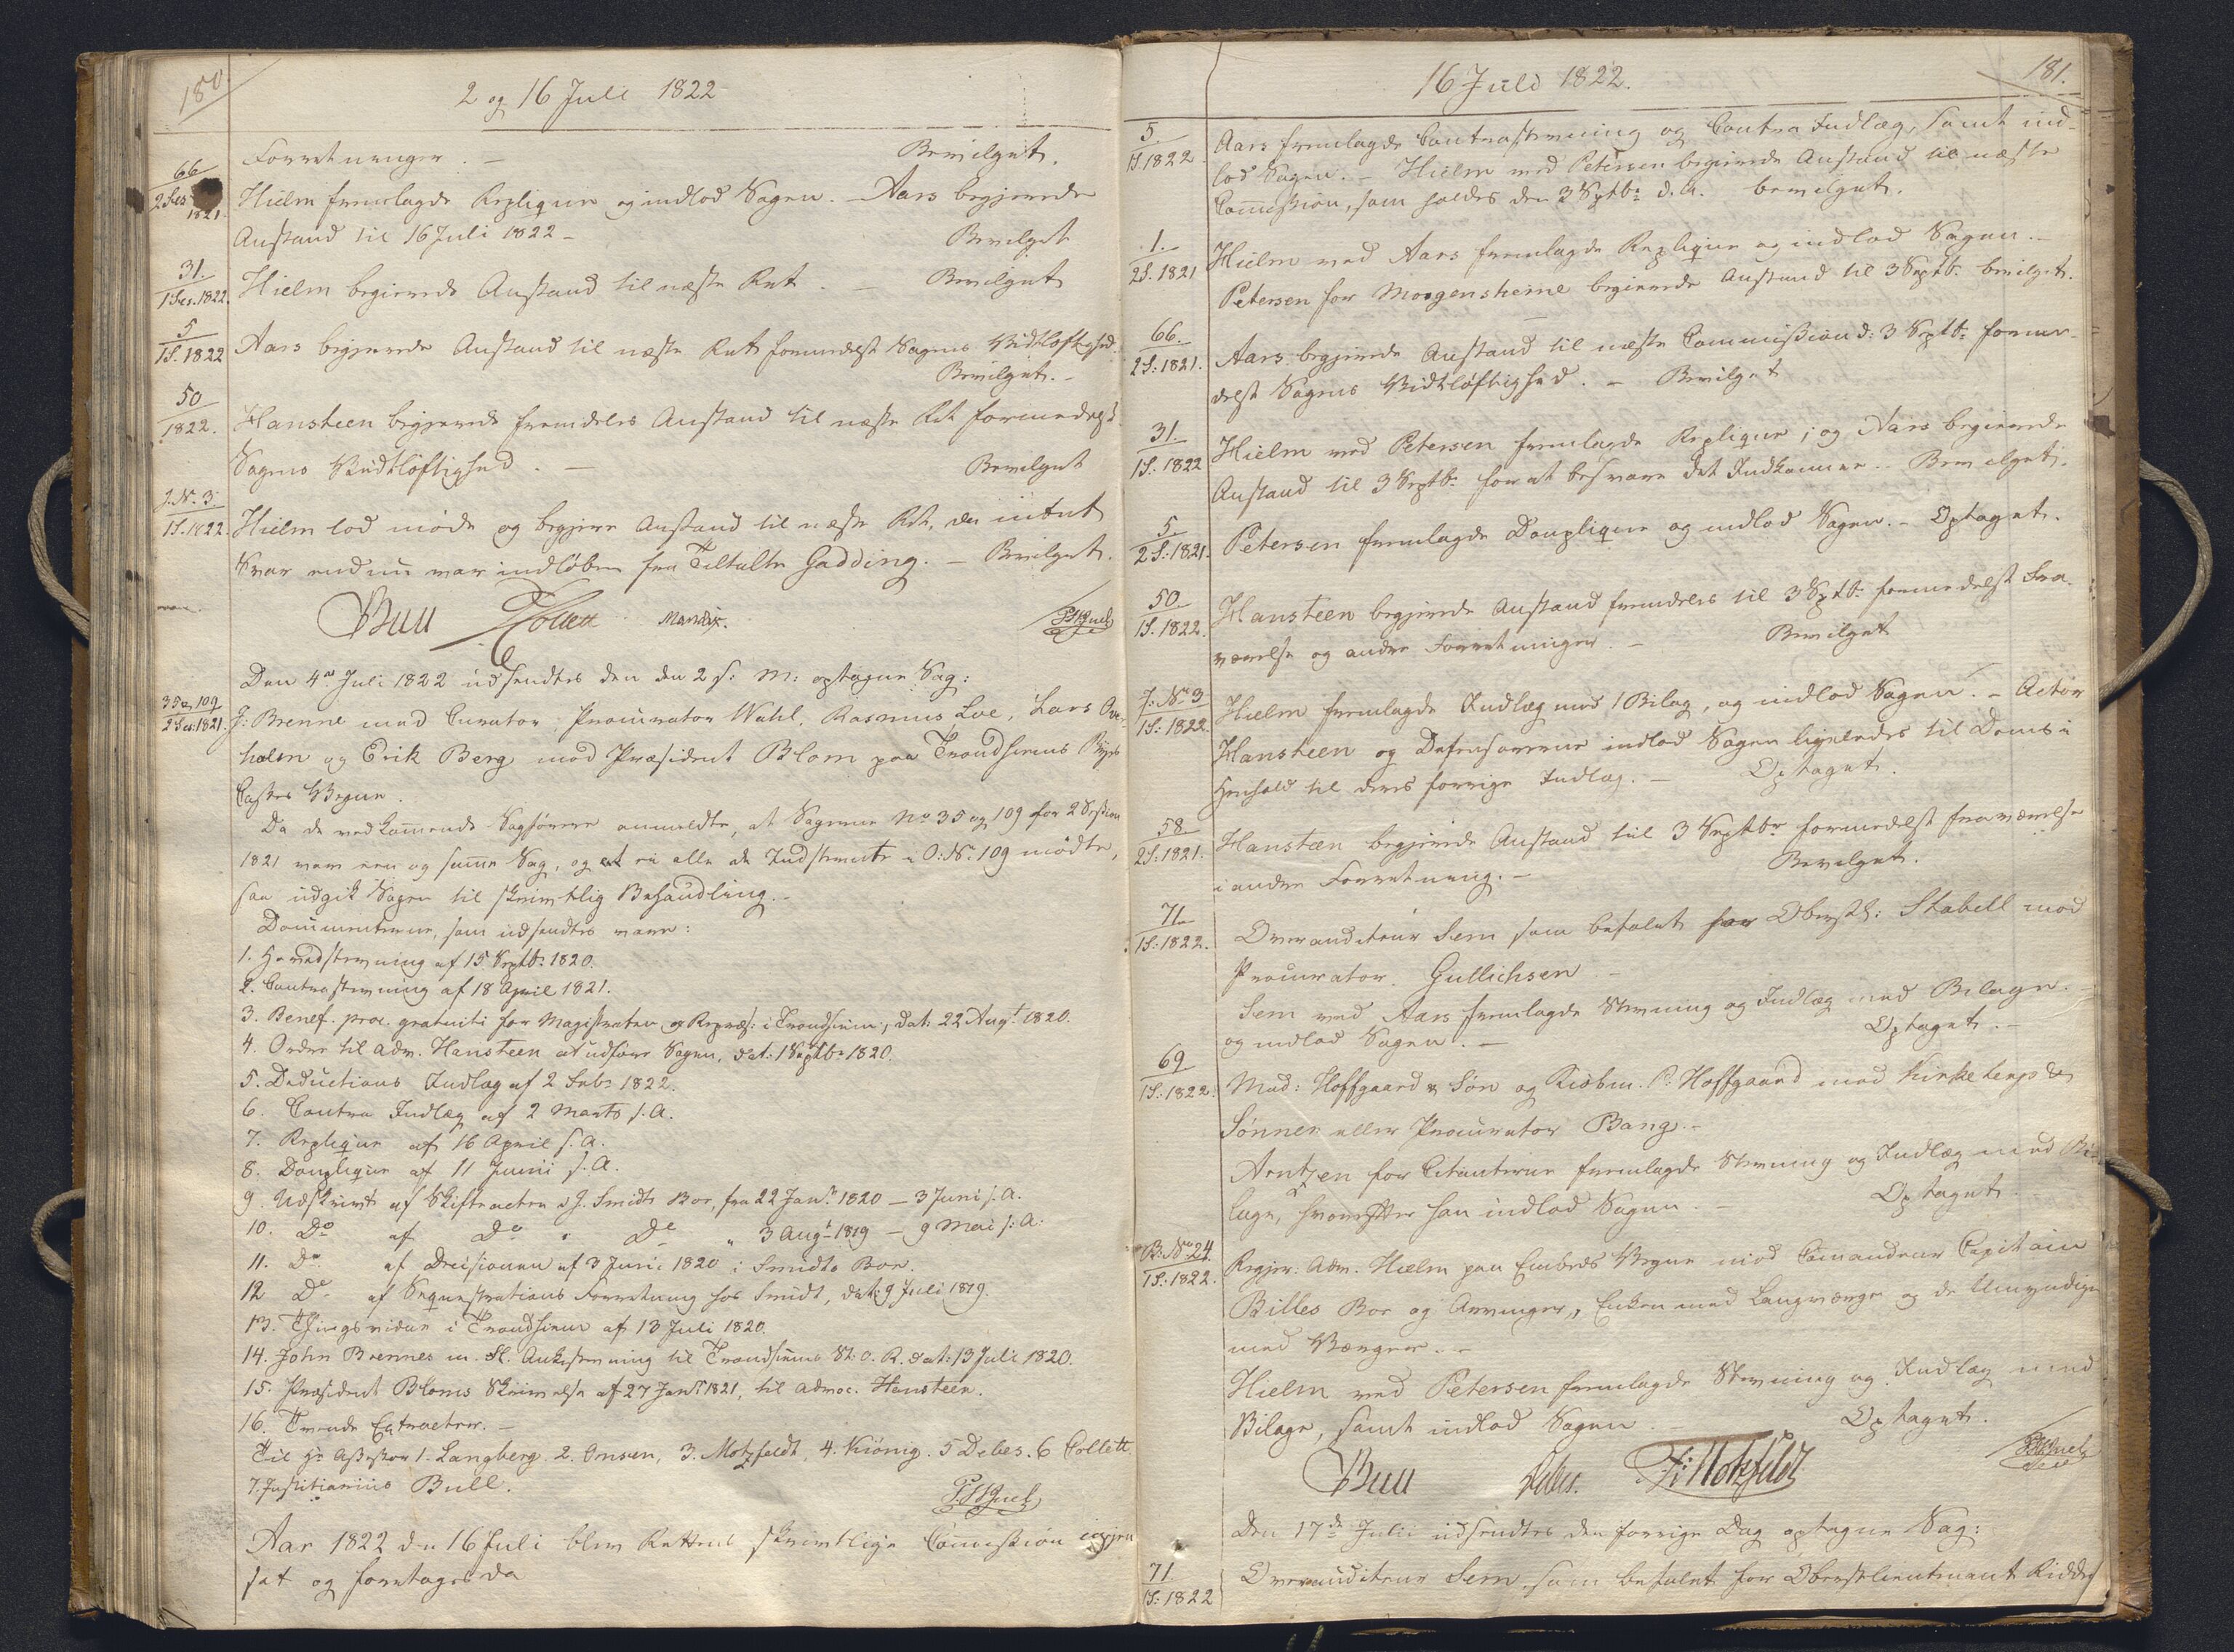 180
2 og 16 Juli 1822
Forretninger. – Bevilget.
66
2 Ses
1821.
Hielm fremlagde Replique og indlod Sagen. – Aars begjerede
Anstand til 16 Juli 1822 – Bevilget
31.
1 Ses. 1822.
Hielm begierede Anstand til næste Ret. – Bevilget
5
1S. 1822
Aars begjerede Anstand til næste Ret formedelst Sagens Vidtløftighed.
Bevilget. –
50
1822.
Hansteen begjerede fremdeles Anstand til næste Ret formedelst
Sagens Vidtløftighed. – Bevilget
J. N. 3
1S. 1822.
Hielm lod møde og begjere Anstand til næste Ret, da intet
Svar endnu var indløben fra Tiltalte Gadding. – Bevilget.
Bull Collett Mandix.
Den 4de Juli 1822 udsendtes den den 2 s: M: optagne Sag:
35 og 109
2 Ses: 1821.
J: Brenne med Curator, Procurator Wahl, Rasmus Loe, Lars Over-
holm og Erik Berg mod Præsident Blom paa Trondhiems Byes
Casses Vegne.
Da de vedkommende Sagførere anmeldte, at Sagerne No 35 og 109 for 2 Session
1821 vare een og samme Sag, og at ei alle de Indstevnte i O: N. 109 mødte,
saa udgik Sagen til skrivtlig Behandling. –
Documenterne, som udsendtes vare:
1. Hovedstevning af 15 Septbr 1820.
2. Contrastevning af 18 April 1821.
3. Benef. proc. gratuiti for Magistraten og Repræs: i Trondhiem, dat. 22 Augt. 1820.
4. Ordre til Adv. Hansteen at udføre Sagen, dat: 1 Septbr 1820.
5. Deductions Indlæg af 2 Febr 1822.
6. Contra Indlæg af 2 Marts s. A.
7. Replique af 16 April s. A.
8. Douplique af 11 Junii s. A.
9. Udskrivt af Skifteacten i J. Smidts Boe, fra 22 Janr 1820 – 3 Juni s. A.
10. Do af Do i Do " 3 Augt 1819 – 9 Mai s: A.
11. Do af Decisionen af 3 Juni 1820 i Smidts Boe.
12 Do af Seqvestrations Forretning hos Smidt, dat: 9 Juli 1819.
13. Thingsvidne i Trondhiem af 13 Juli 1820.
14. John Brennes m. fl. Ankestevning til Trondhiems St. O. R. dat: 13 Juli 1820.
15. Præsident Bloms Skrivelse af 27 Janr 1821, til Advoc. Hansteen.
16. Trende Extracter. –
Til Hr Assessor 1. Langberg. 2. Omsen, 3. Motzfeldt, 4. Kiønig. 5 Debes. 6 Collett.
7. Justitiarius Bull.
Aar 1822 den 16 Juli blev Rettens skrivtlige Commission igjen
sat og foretages da
181.
16 Juli 1822.
5
1S. 1822
Aars fremlagde Contrastevning og Contra Indlæg, samt ind-
lod Sagen. – Hielm ved Petersen begierede Anstand til næste
Commission, som holdes den 3 Septbr d. A. bevilget.
1. –
2S. 1821
Hielm ved Aars fremlagde Replique og indlod Sagen. –
Petersen for Morgenstierne begierede Anstand til 3 Septbr bevilget.
66.
2S: 1821.
Aars begjerede Anstand til næste Commission d: 3 Septbr forme-
delst Sagens Vidtløftighed. – Bevilget
31.
1S: 1822
Hielm ved Petersen fremlagde Replique; og Aars begierede
Anstand til 3 Septbr for at besvare det Indkomne. Bevilget.
5.
2S: 1821.
Petersen fremlagde Douplique og indlod Sagen. – Optaget.
50.
1S. 1822.
Hansteen begjerede Anstand fremdeles til 3 Septbr formedelst Fra-
værelse og andre Forretninger. – Bevilget
J: No 3
1S: 1822.
Hielm fremlagde Indlæg med 1 Bilag, og indlod Sagen. – Actor
Hansteen og Defensorerne indlod Sagen ligeledes til Doms i
Henhold til deres forrige Indlæg. – Optaget.
58
2S: 1821.
Hansteen begjerede Anstand til 3 Septbr formedelst fraværelse
i andre Forretning. – Bevilget.
71.
1S: 1822.
Overauditeur Sem som befalet for Oberstl: Stabell mod
Procurator Gullichsen –
Sem ved Aars fremlagde Stevning og Indlæg med Bilage. –
og indlod Sagen. – Optaget. –
69
1S: 1822.
Mad: Hoffgaard & Søn og Kiøbm. P. Hoffgaard mod Kirketerp &
Sønner eller Procurator Bang. –
Arntzen for Citanterne fremlagde Stevning og Indlæg med Bi-
lage, hvorefter han indlod Sagen. – Optaget
B: No 24
1S: 1822.
Regjer: Adv. Hielm paa Embeds Vegne mod Commandeur Capitain
Billes Boe og Arvinger, Enken med Laugværge og de Umyndige
med Værger. –
Hielm ved Petersen fremlagde Stevning og Indlæg med
Bilage, samt indlod Sagen Optaget.
Bull Debes. Motzfeldt
Den 17de Julii udsendtes den forrige Dag optagne Sag:
71
1S: 1822
Overauditeur Sem, som befalet for Oberstlieutnant Ridder